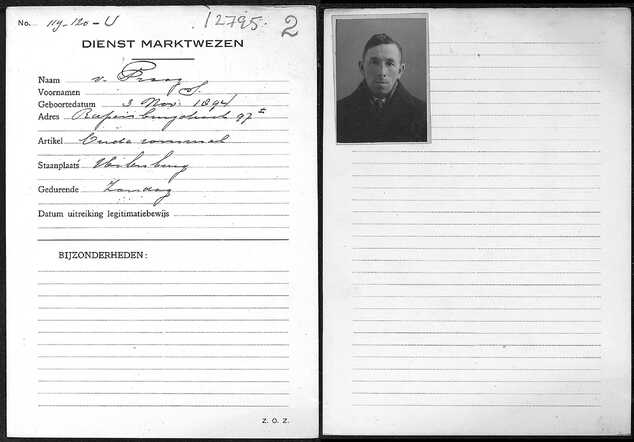 No. 119-120-U 12795. 2
DIENST MARKTWEZEN
Naam v. Praag
Voornamen S.
Geboortedatum 3 Nov. 1894
Adres Rapenburgstraat 97
Artikel Oude rommel
Staanplaats Uilenburg
Gedurende Zondag
Datum uitreiking legitimatiebewijs
BIJZONDERHEDEN:
Z. O. Z.